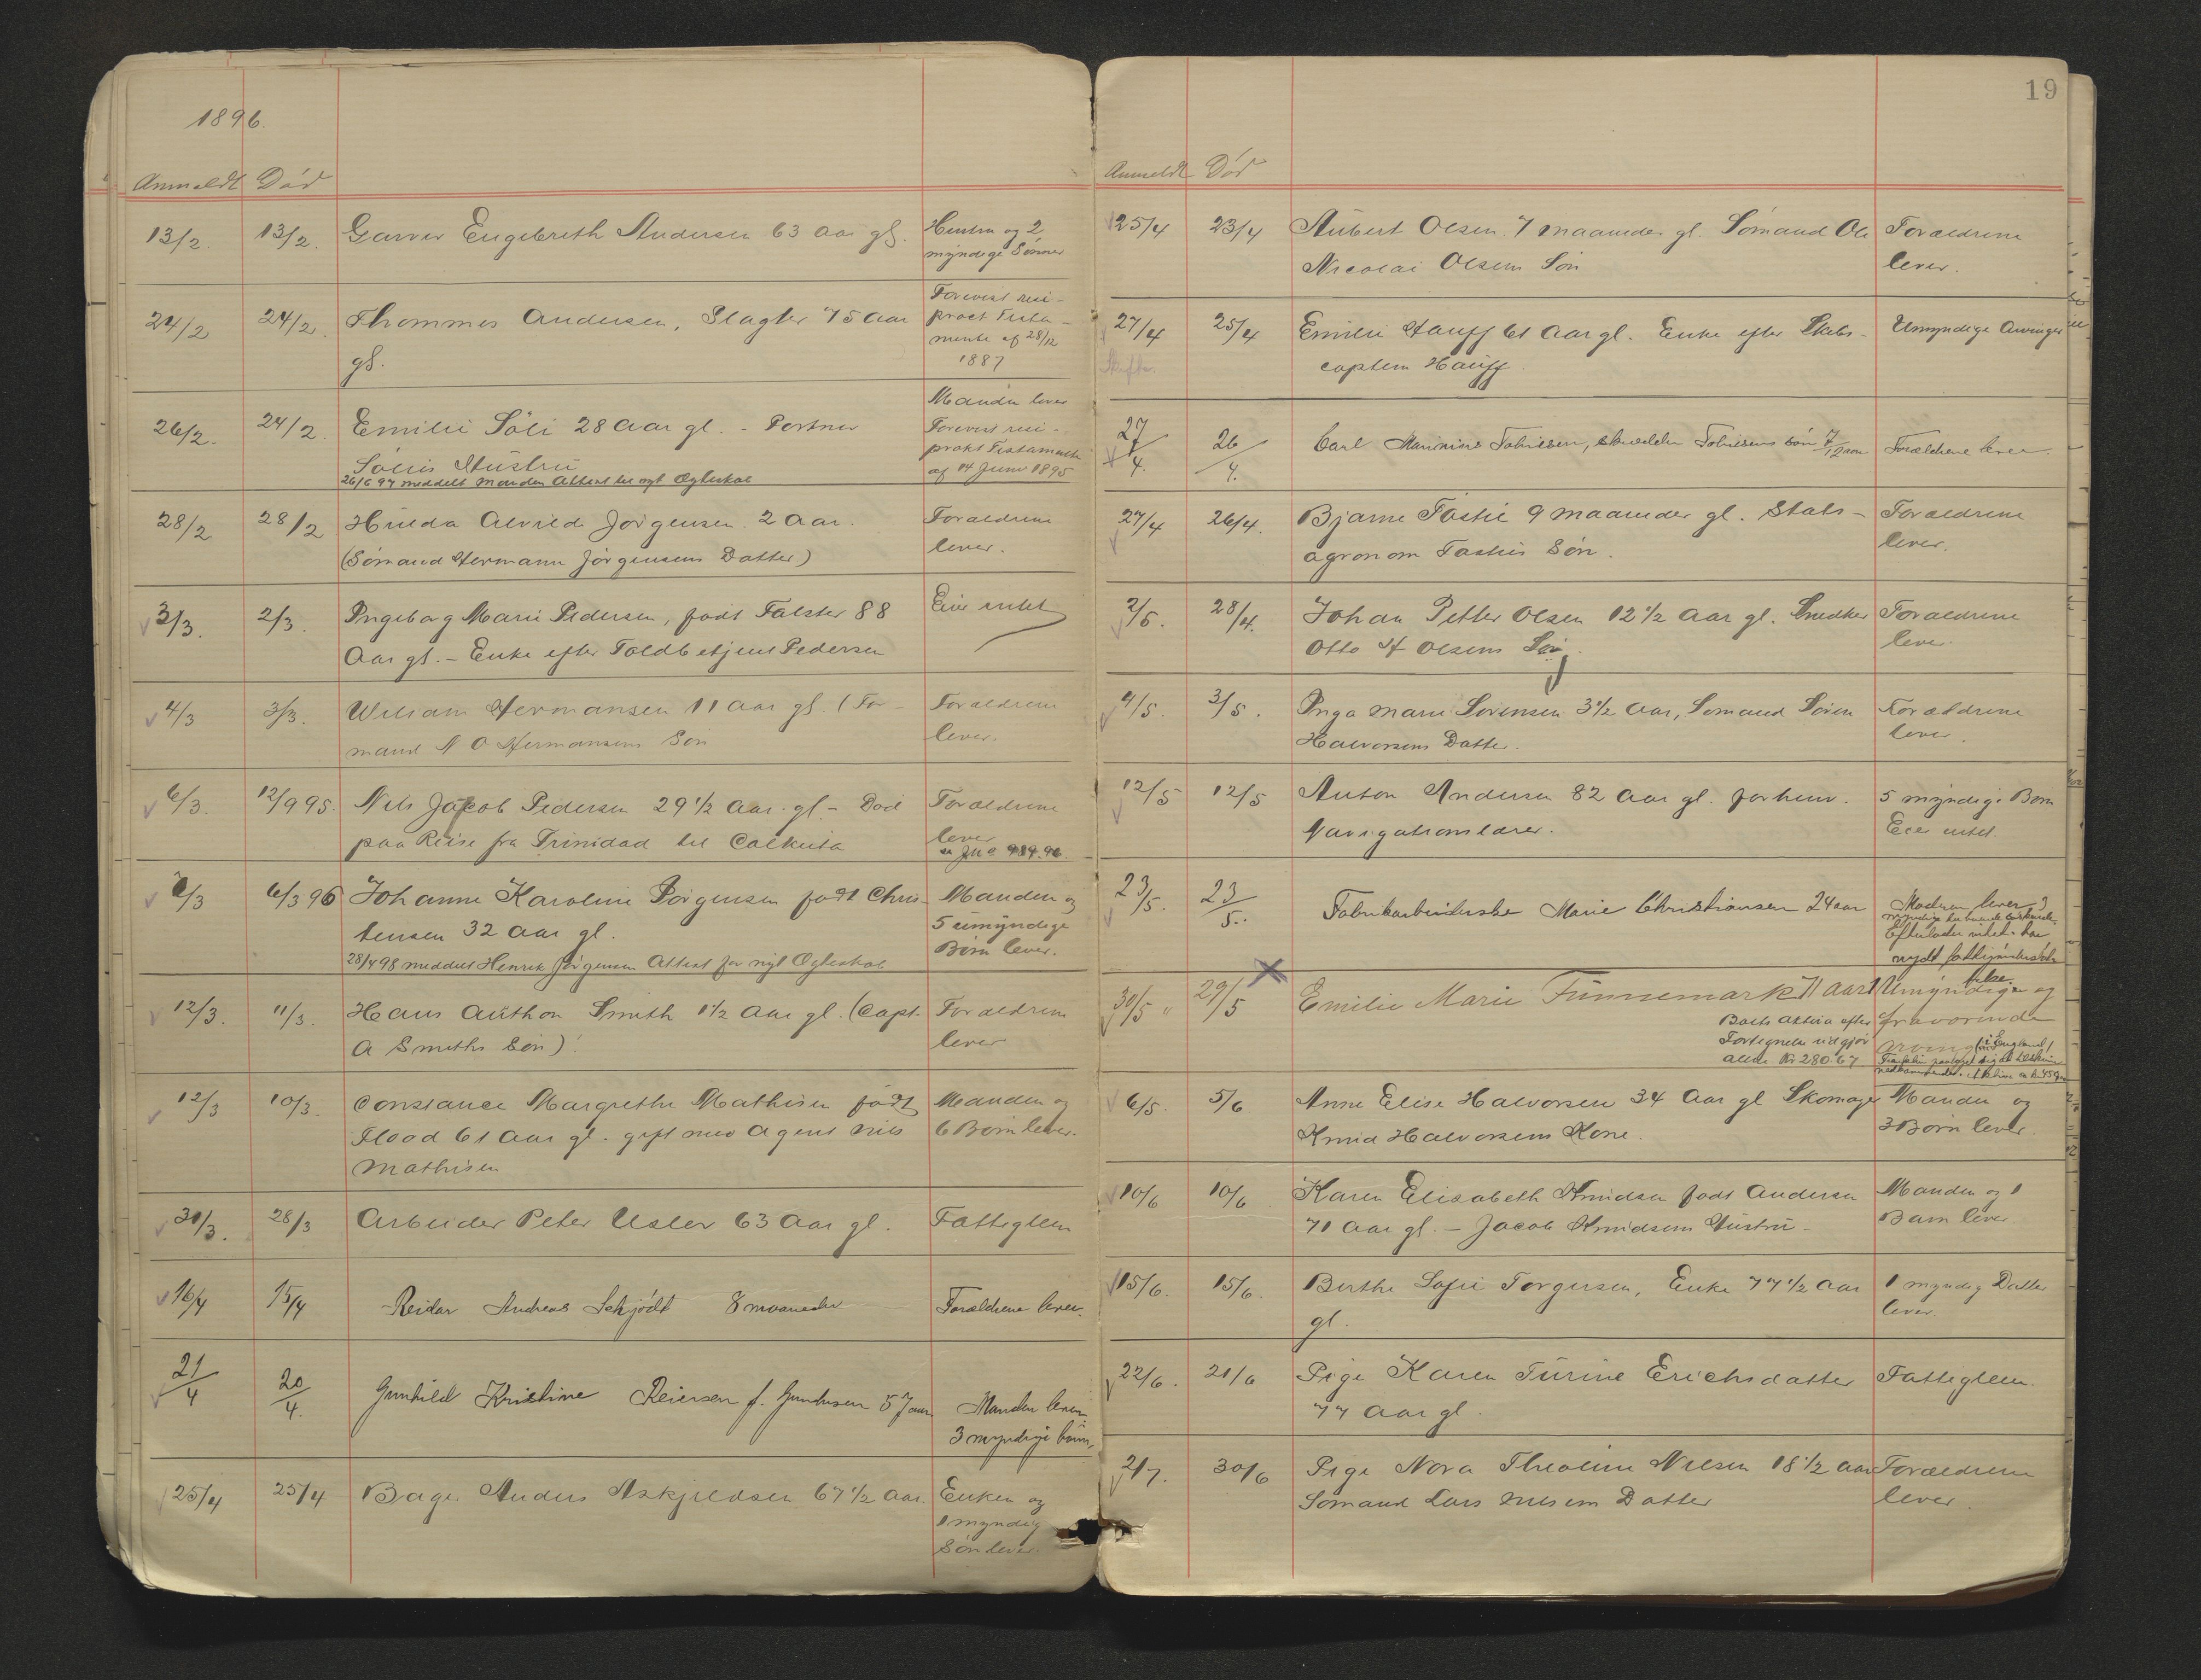 1896.
Anmeldt Död
13/2. 13/2. Garver Engebreth Andersen 63 Aar gl. Hustru og 2
myndige Sönner
24/2 24/2. Thommes Andersen, Slagter 75 Aar
gl.
Forevist resi-
proct Testa-
mente af 28/12
1887
26/2. 24/2. Emilie Söli 28 Aar gl. - Portner
Sölis Hustru
26/6 97 meddelt Manden Attest til nyt Ægteskab
Manden lever
Forevist resi-
prokt Testamente
af 14 Juni 1895
28/2 28/2 Hulda Alvilde Jörgensen. 2 Aar. Foraeldrene
(Sömand Hermann Jörgensens Datter) lever.
3/3. 2/3. Ingeborg Marie Pedersen, födt Falster 88 Eier intet
Aar gl. - Enke efter Toldbetjent Pedersen
4/3 3/3. William Hermansen 11 Aar gl. (For- Foraeldrene
mand N O Hermansens Sön lever.
6/3. 12/9 95. Nils Jacob Pedersen 29 1/2 Aar gl. - Död Foraeldrene
paa Reise fra Trinidad til Calkuta lever
6/3 96 Johanne Karoline Jörgensen födt Chris- Manden og
tensen 32 Aar gl. 5 umyndige
28/4 98 meddelt Henrik Jörgensen Attest for nyt Ægteskab Börn lever.
12/3. 11/3. Hans Anthon Smith 1 1/2 Aar gl. (Capt. Foraeldrene
A Smiths Sön). lever
12/3 10/3. Constance Margrethe Mathisen födt Manden og
Flood 61 Aar gl. gift med Agent Nils 6 Börn lever.
Mathisen
30/3. 28/3 Arbeider Peter Usler 63 Aar gl. Fattiglem
16/4 15/4 Reidar Andreas Schjödt 8 maaneder Foraeldrene lever.
21/4 20/4. Gunhild Kristine Reiersen f. Gundersen 57 aar. Manden lever
3 myndige börn,
25/4 25/4 Bager Anders Askjeldsen 67 1/2 Aar Enken og
1 myndig
Sön lever.
19
Anmeldt Död
25/4 23/4 Aubert Olsen. 7 maaneder gl. Sömand Ole Foraeldrene
Nicolai Olsens Sön lever.
27/4 25/4 Emilie Hauff 61 Aar gl. Enke efter Skibs- Umyndige Arvinger
captein Hauff.
27/4. 26/4. Carl Marinius Tobiesen, skraedder Tobiesens sön 7/12 aar Foraeldrene lever.
27/4 26/4. Bjarne Tostie 9 maaneder gl. Stats- Foraeldrene
agronom Tosties Sön. lever.
2/5. 28/4. Johan Petter Olsen 12 1/2 Aar gl. Snedker Foraeldrene
Otto H Olsens Sön. lever.
4/5. 3/5. Inga Marie Sörensen 3 1/2 Aar, Sömand Sören Foraeldrene
Halvorsens Datter. lever.
12/5 12/5 Anton Andersen 82 Aar gl. forhenv. 5 myndige Börn
Navigationslærer. Eier intet.
23/5. 23/5. Fabrikarbeiderske Marie Christiansen 24 aar Moderen lever, 3
Efterlader intet. har
nydt fattigunderstöt-
telse.
30/5 " 29/5 Emilie Marie Finnemark 71 Aar Umyndige og
Boets Aktiva efter fraværende
Fortegnelse udgjör Arving (i England)
alene Kr 280.67
6/5. 5/6 Anne Elise Halvorsen 34 Aar gl Skomager Manden og
Knud Halvorsens Kone. 3 Börn lever.
10/6 10/6 Karen Elisabeth Knudsen födt Andersen Manden og 1
71 Aar gl. - Jacob Knudsens Hustru - Barn lever
15/6. 15/6. Berthe Sofie Torgersen, Enke 77 1/2 Aar 1 myndig Datter
gl. lever
22/6. 21/6 Pige Karen Turine Erichsdatter Fattiglem.
77 Aar gl.
2/7. 30/6 Pige Nora Theoline Nilsen 18 1/2 Aar Foraeldrene
Sömand Lars Nilsens Datter lever.